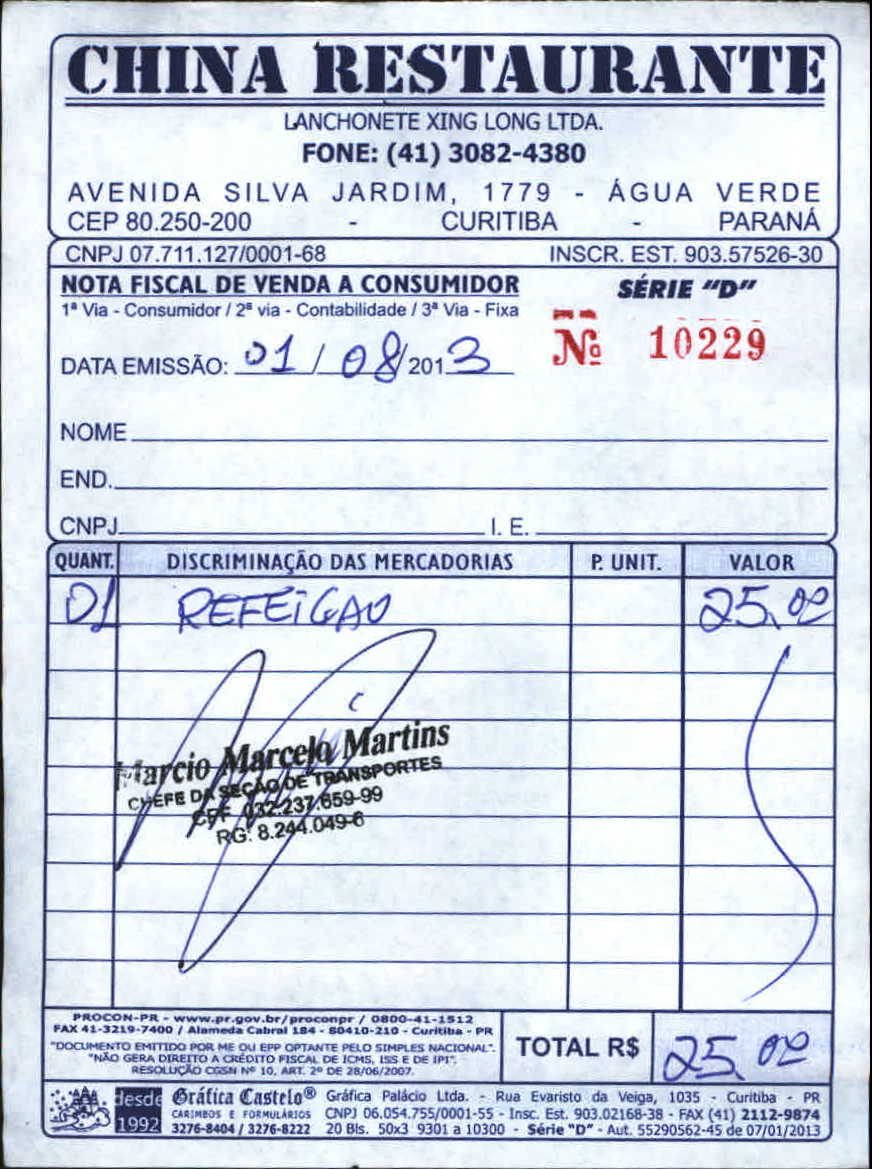 CHINA RESTAURANTE
LANCHONETE XING LONG LTDA.
FONE: (41) 3082-4380
AVENIDA SILVA JARDIM, 1779 - ÁGUA VERDE
CEP 80.250-200 - CURITIBA - PARANÁ
CNPJ 07.711.127/0001-68 INSCR. EST. 903.57526-30
NOTA FISCAL DE VENDA A CONSUMIDOR SÉRIE "D"
1ª Via - Consumidor / 2ª via - Contabilidade / 3ª Via - Fixa
Nº 10229
DATA EMISSÃO: 01/08/2013
NOME
END.
CNPJ I. E.
QUANT. DISCRIMINAÇÃO DAS MERCADORIAS P. UNIT. VALOR
01 REFEIÇAO 25,00
Marcio Marcelo Martins
CHEFE DA SEÇÃO DE TRANSPORTES
CPF 032-237.659-99
RG: 8.244.049-6
PROCON-PR - www.pr.gov.br/proconpr / 0800-41-1512
FAX 41-3219-7400 / Alameda Cabral 184 - 80410-210 - Curitiba - PR
"DOCUMENTO EMITIDO POR ME OU EPP OPTANTE PELO SIMPLES NACIONAL".
"NÃO GERA DIREITO A CRÉDITO FISCAL DE ICMS, ISS E DE IPI".
RESOLUÇÃO CGSN Nº 10, ART. 2º DE 28/06/2007.
TOTAL R$ 25,00
desde 1992
Gráfica Castelo® Gráfica Palácio Ltda. - Rua Evaristo da Veiga, 1035 - Curitiba - PR
CARIMBOS E FORMULÁRIOS CNPJ 06.054.755/0001-55 - Insc. Est. 903.02168-38 - FAX (41) 2112-9874
3276-8404 / 3276-8222 20 Bls. 50x3 9301 a 10300 - Série "D" - Aut. 55290562-45 de 07/01/2013